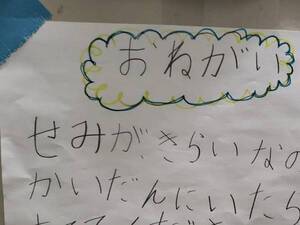 おねがい
せみが、きらいなの
かいだんにいたら